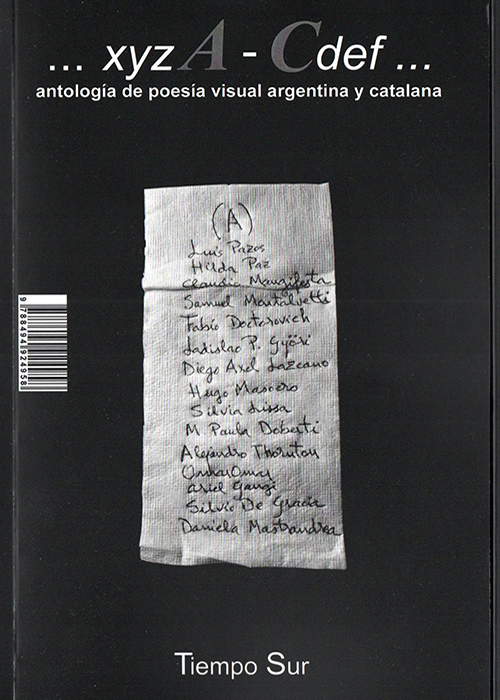 ... xyz A - C def ...
antología de poesía visual argentina y catalana
(A)
Luis Pazos
Hilda Paz
Claudio Mangifesta
Samuel Montalvetti
Fabio Doctorovich
Ladislao P. Györi
Diego Axel Lazcano
Hugo Masoero
Silvia Lissa
M Paula Doberti
Alejandro Thornton
OmarOmar
Ariel Gangi
Silvio De Gracia
Daniela Mastrandrea
9 788494 924958
Tiempo Sur